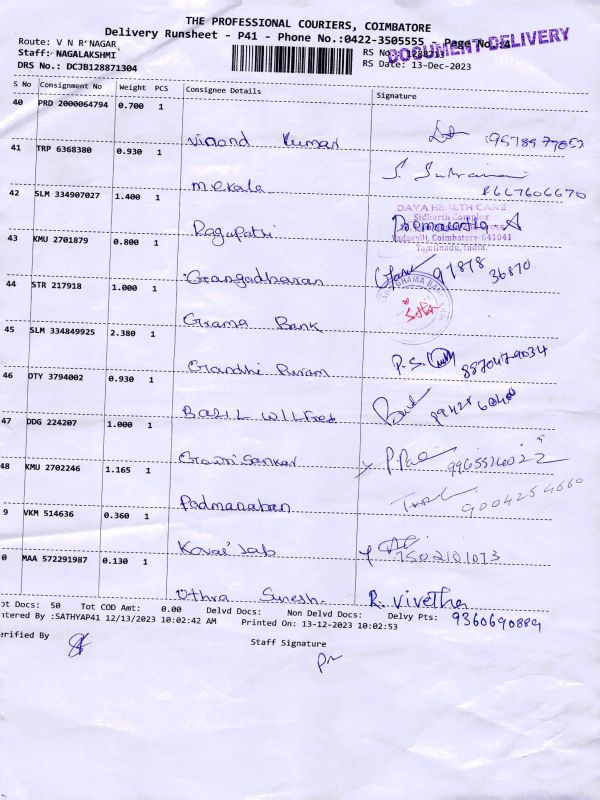 THE PROFESSIONAL COURIERS, COIMBATORE
Delivery Runsheet - P41 - Phone No.:0422-3505555 - Page No.:4
DOCUMENT DELIVERY
Route: V N R NAGAR
Staff: NAGALAKSHMI
DRS No.: DCJB128871304
RS No.:
RS Date: 13-Dec-2023
S No Consignment No Weight PCS Consignee Details Signature
40 PRD 2000064794 0.700 1 Vinond Kumar
41 TRP 6368380 0.930 1 Mekala 8667606670
42 SLM 334907027 1.400 1 Ragupathi
DAYA HEALTH CARE
Sidharth Complex
Vadavalli, Coimbatore-641041
Tamilnadu, India.
43 KMU 2701879 0.800 1 Grangadharan 97878 36870
44 STR 217918 1.000 1 Grama Bank
45 SLM 334849925 2.380 1 Grandhi Puram 8870479034
46 OTY 3794002 0.930 1 BASIL WILFred
47 DDG 224207 1.000 1 Growri Sankar
48 KMU 2702246 1.165 1 Padmanaban 9004254660
9 VKM 514636 0.360 1 Kovai Jab 7502101073
0 MAA 572291987 0.130 1 Uthra Suresh. R. Vivetha
ot Docs: 50 Tot COD Amt: 0.00 Delvd Docs: Non Delvd Docs: Delvy Pts: 9360690889
ntered By :SATHYAP41 12/13/2023 10:02:42 AM Printed On: 13-12-2023 10:02:53
erified By
Staff Signature